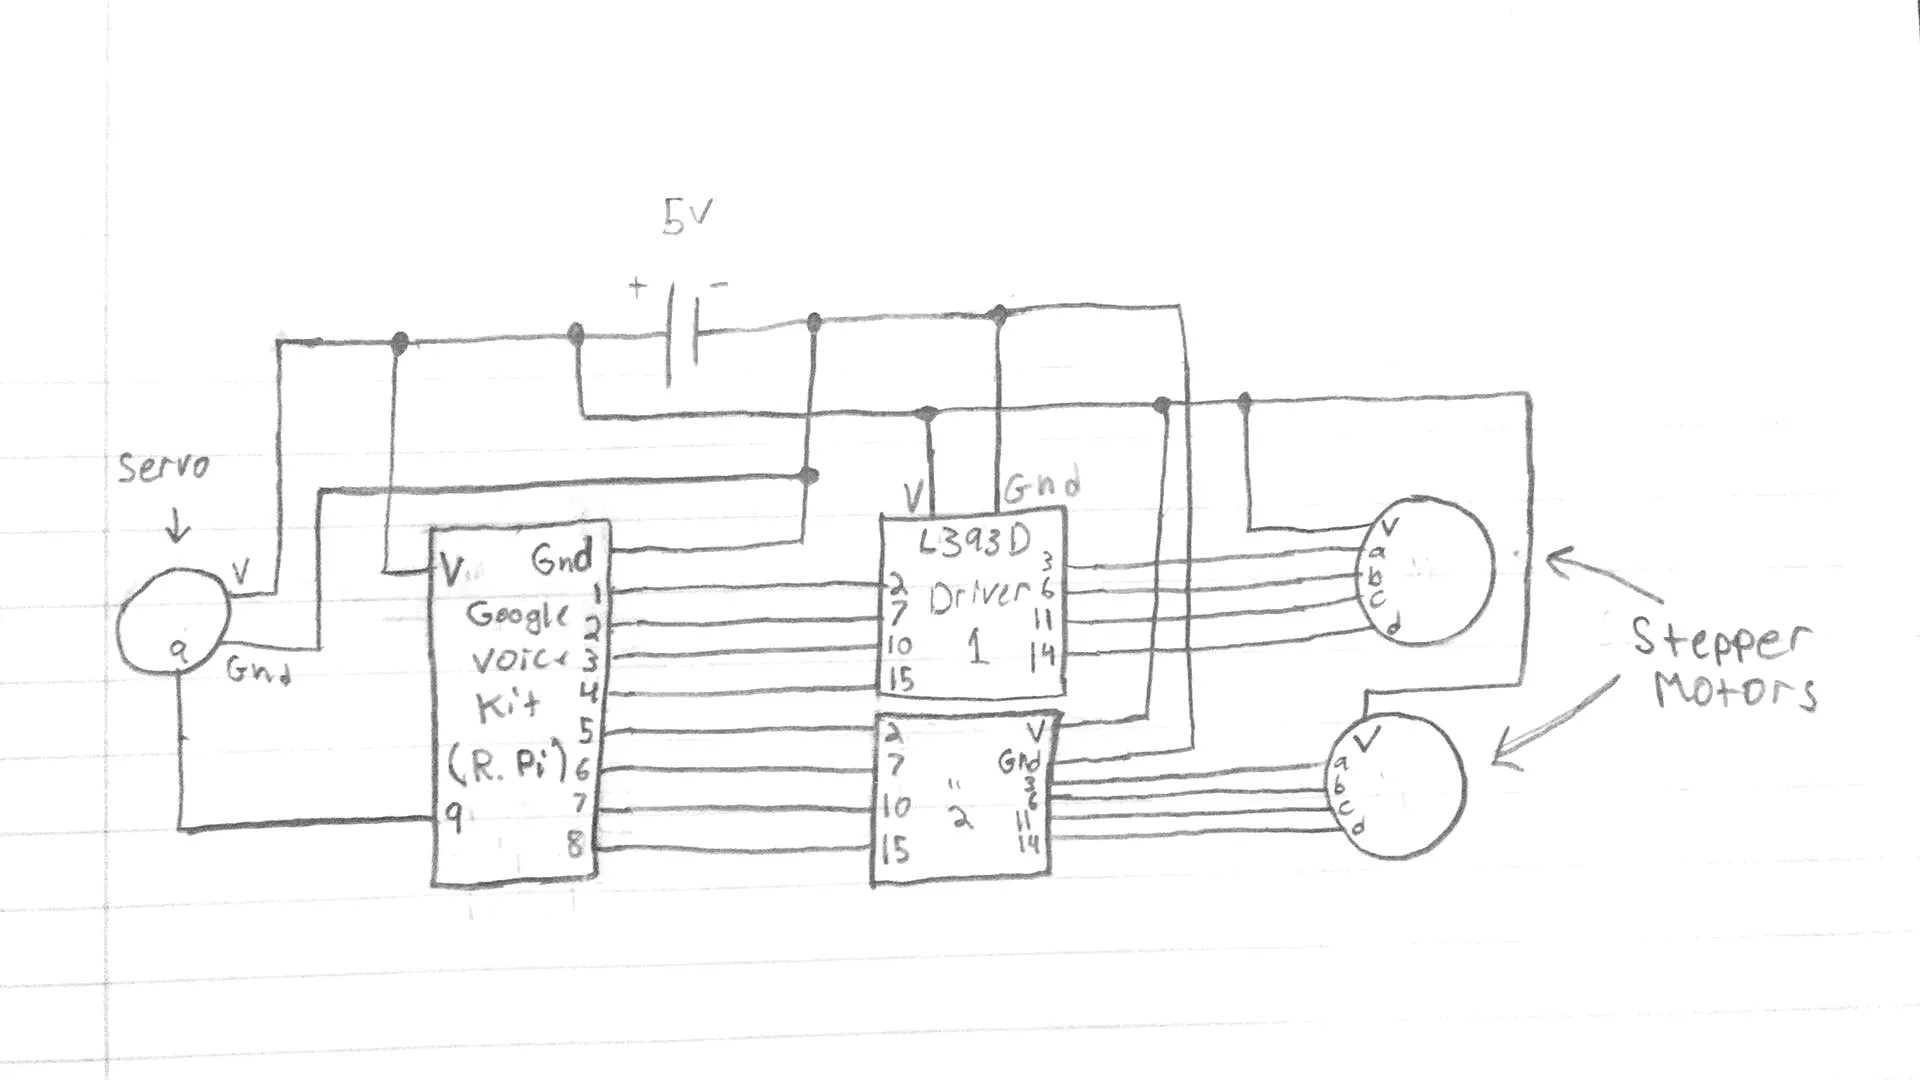 5V
+ -
Servo
V
a
Gnd
V Gnd
Google
Voice
Kit
(R. Pi)
1
2
3
4
5
6
7
8
9
V Gnd
L393D
Driver
1
2
7
10
15
3
6
11
14
"
2
2
7
10
15
V
Gnd
3
6
11
14
V
a
b
c
d
V
a
b
c
d
Stepper
Motors